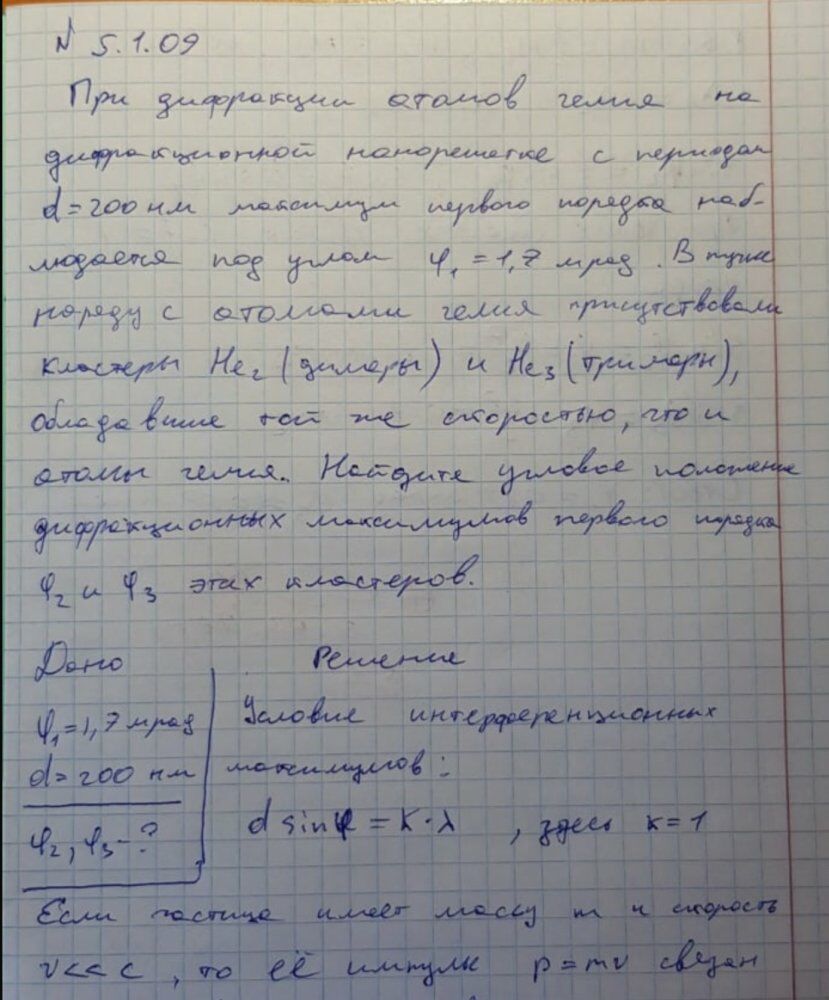 N 5.1.09
При дифракции атомов гелия на
дифракционной нанорешетке с периодом
d=200 нм максимум первого порядка наб-
людается под углом φ₁ = 1,7 мрад. В пучке
наряду с атомами гелия присутствовали
кластеры He₂ (димеры) и He₃ (тримеры),
обладавшие той же скоростью, что и
атомы гелия. Найдите угловое положение
дифракционных максимумов первого порядка
φ₂ и φ₃ этих кластеров.
Дано
Решение
φ₁=1,7 мрад
d=200 нм
φ₂, φ₃ - ?
Условие интерференционных
максимумов:
d sinφ = K·λ , здесь к=1
Если частица имеет массу m и скорость
v<<c , то её импульс p=mv связан